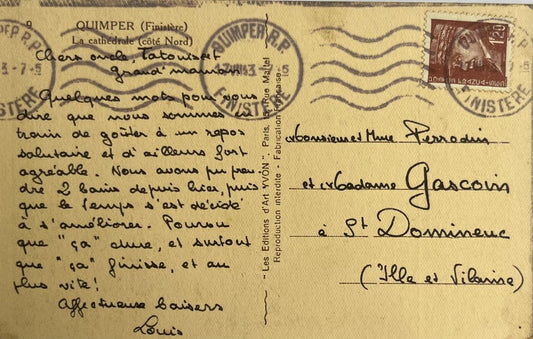 9 QUIMPER (Finistère)
La cathédrale (côté Nord)
Chers oncle, Tatouise et
Grand'maman
Quelques mots pour vous
dire que nous sommes en
train de goûter à un repos
salutaire et d'ailleurs fort
agréable. Nous avons pu pren-
dre 2 bains depuis hier, puis
que le temps s'est décidé
à s'améliorer. Pourvu
que "ça" dure, et surtout
que "ça" finisse, et au
plus vite!
Affectueux baisers
Louis
"Les Editions d'Art YVON". Paris, 15, Rue Martel
Reproduction interdite - Fabrication Française.
QUIMPER R.P.
FINISTÈRE
R.P.
3-7-15
FINISTÈRE
43
FINISTÈRE
1F20
Monsieur et Mme Perrodin
et Madame Gascoin
à St Domineuc
(Ille et Vilaine)